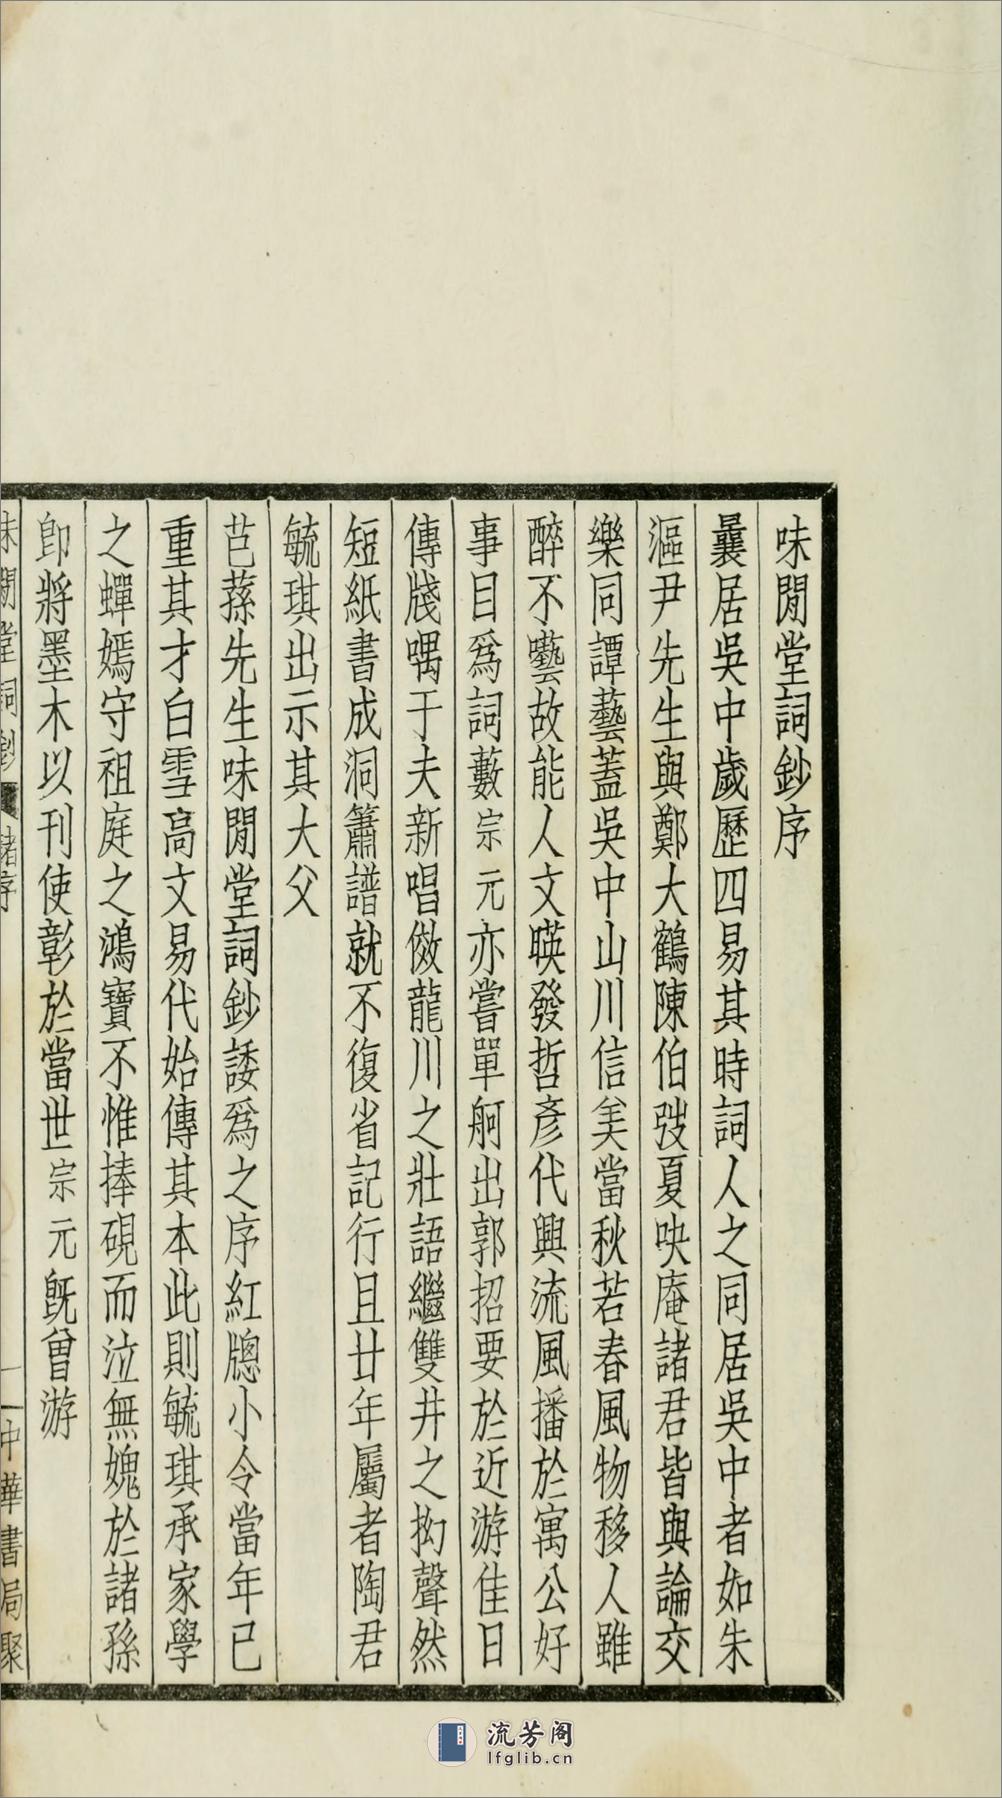 味閒堂詞鈔序
曩居吳中歲歷四易其時詞人之同居吳中者如朱
漚尹先生與鄭大鶴陳伯弢夏吷庵諸君皆與論交
樂同譚藝蓋吳中山川信美當秋若春風物移人雖
醉不囈故能人文暎發哲彥代興流風播於寓公好
事目爲詞藪宗元亦嘗單舸出郭招要於近游佳日
傳牋喁于夫新唱倣龍川之壯語繼雙井之拗聲然
短紙書成洞簫譜就不復省記行且廿年屬者陶君
毓琪出示其大父
芑蓀先生味閒堂詞鈔諉爲之序紅牕小令當年已
重其才白雪高文易代始傳其本此則毓琪承家學
之蟬嫣守祖庭之鴻寶不惟捧硯而泣無媿於諸孫
卽將墨木以刊使彰於當世宗元旣曾游
味閒堂詞鈔 諸序 一 中華書局聚
流芳阁
lfglib.cn